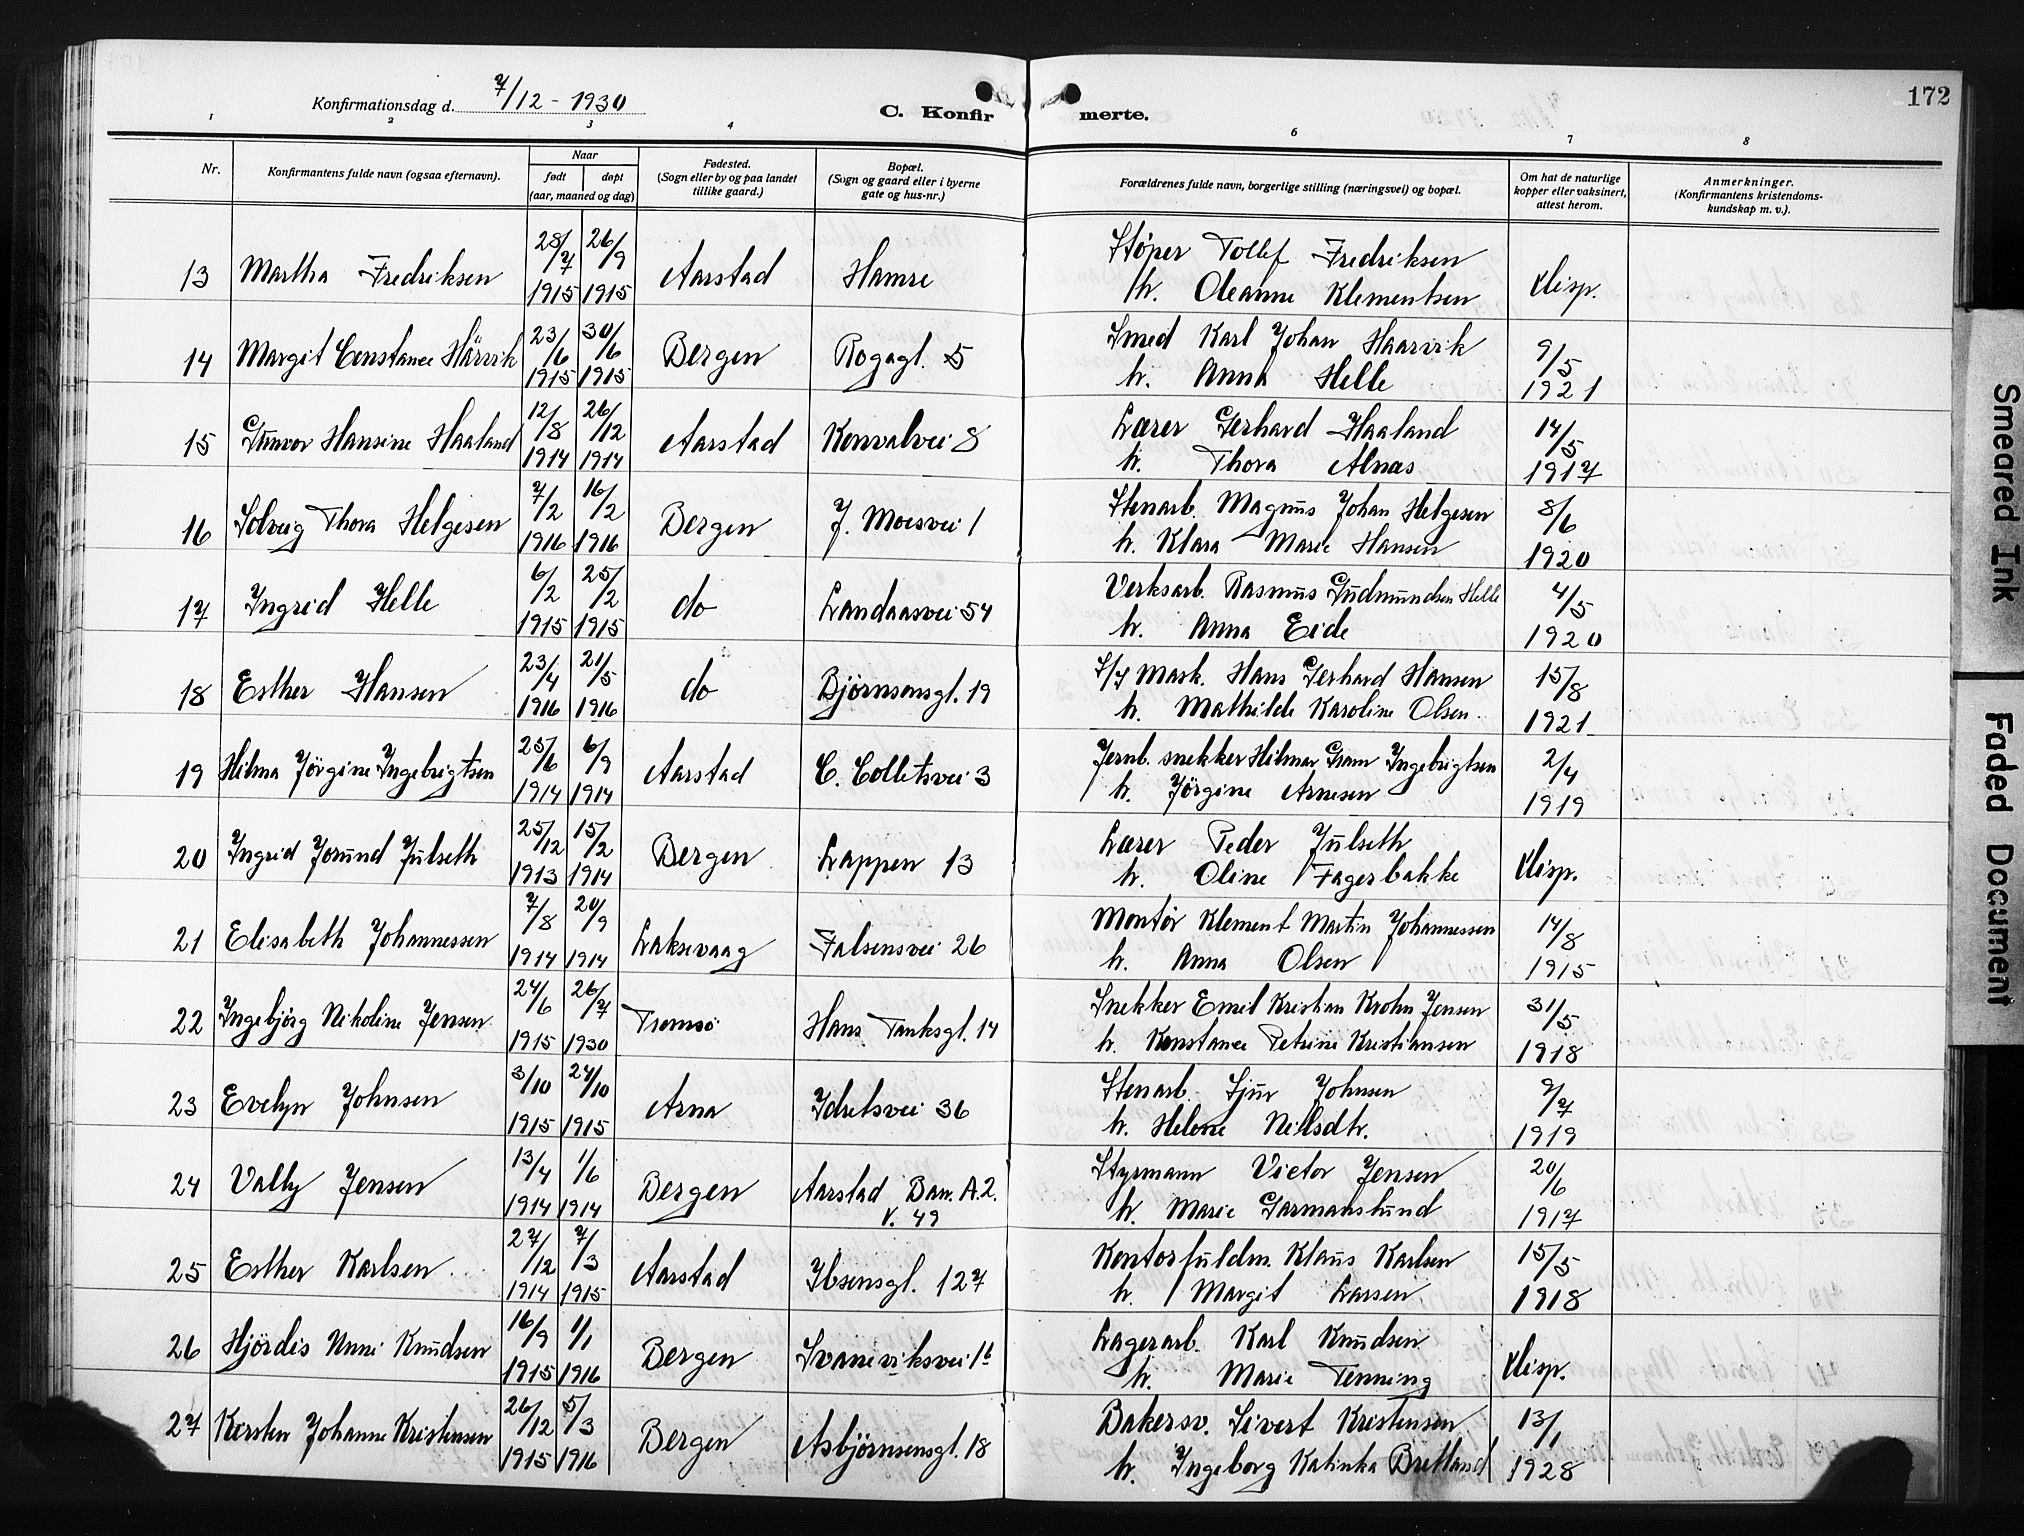 Konfirmationsdag d. 7/12 - 1930
C. Konfirmerte.
172
1 2 3 4 6 7 8
Nr.
Konfirmantens fulde navn (ogsaa efternavn).
Naar
født døpt
(aar, maaned og dag)
Fødested.
(Sogn eller by og paa landet
tillike gaard.)
Bopæl.
(Sogn og gaard eller i byerne
gate og hus-nr.)
Forældrenes fulde navn, borgerlige stilling (næringsvei) og bopæl.
Om hat de naturlige
kopper eller vaksinert,
attest herom.
Anmerkninger.
(Konfirmantens kristendoms-
kundskap m. v.).
13 Martha Fredriksen 28/7 1915 26/9 1915 Aarstad Hamre Støper Tollef Fredriksen
h. Oleanne Klementsen disp.
14 Margit Constance Hårvik 23/6 1915 30/6 1915 Bergen Rogagt. 5 Smed Karl Johan Haarvik
h. Anna Helle 9/5 1921
15 Gunvor Hansine Haaland 12/8 1914 26/12 1914 Aarstad Konvalvei 8 Lærer Gerhard Haaland
h. Thora Alnas 14/5 1917
16 Solveig Thora Helgesen 7/2 1916 16/2 1916 Bergen J. Moesvei 1 Stenarb. Magnus Johan Helgesen
h. Klara Marie Hansen 8/6 1920
17 Ingrid Helle 6/2 1915 25/2 1915 do Landaasvei 54 Verksarb. Rasmus Gudmundsen Helle
h. Anna Eide 4/5 1920
18 Esther Hansen 23/4 1916 21/5 1916 do Bjørnsonsgt. 19 Mask. Hans Gerhard Hansen
h. Mathilde Karoline Olsen 15/8 1921
19 Hilma Jörgine Ingebrigtsen 25/6 1914 6/9 1914 Aarstad C. Colletsvei 3 Jernb. snekker Hilmar Gram Ingebrigtsen
h. Jörgine Arnesen 2/4 1919
20 Ingrid Jorund Julseth 25/12 1913 15/2 1914 Bergen Lappen 13 Lærer Peder Julseth
h. Oline Fagerbakke disp.
21 Elisabeth Johannessen 7/8 1914 20/9 1914 Laksevaag Falsensvei 26 Montør Klement Martin Johannessen
h. Anna Olsen 14/8 1915
22 Ingebjørg Nikoline Jensen 24/6 1915 26/7 1930 Tromsö Hans Tanksgt. 14 Snekker Emil Kristian Krohn Jensen
h. Konstance Petrine Kristiansen 31/5 1918
23 Evelyn Johnsen 3/10 1915 24/10 1915 Arna Idretsvei 36 Stenarb. Sjur Johnsen
h. Helene Nillsdtr. 9/7 1919
24 Vally Jensen 13/4 1914 1/6 1914 Bergen Aarstad Bam. A.2.
V. 49 Styrmann Victor Jensen
h. Marie Garmanslund 20/6 1917
25 Esther Karlsen 27/12 1914 7/3 1915 Aarstad Ibsensgt. 127 Kontorfuldm. Klaus Karlsen
h. Margit Larsen 15/5 1918
26 Hjördis Unni Knudsen 16/9 1915 1/1 1916 Bergen Svaneviksvei 1b Lagerarb. Karl Knudsen
h. Marie Tenning disp.
27 Kirsten Johanne Kristensen 26/12 1915 5/3 1916 Bergen Asbjørnsensgt. 18 Bakersv. Sivert Kristensen
h. Ingeborg Katinka Bretland 13/1 1928
Smeared Ink
Faded Document